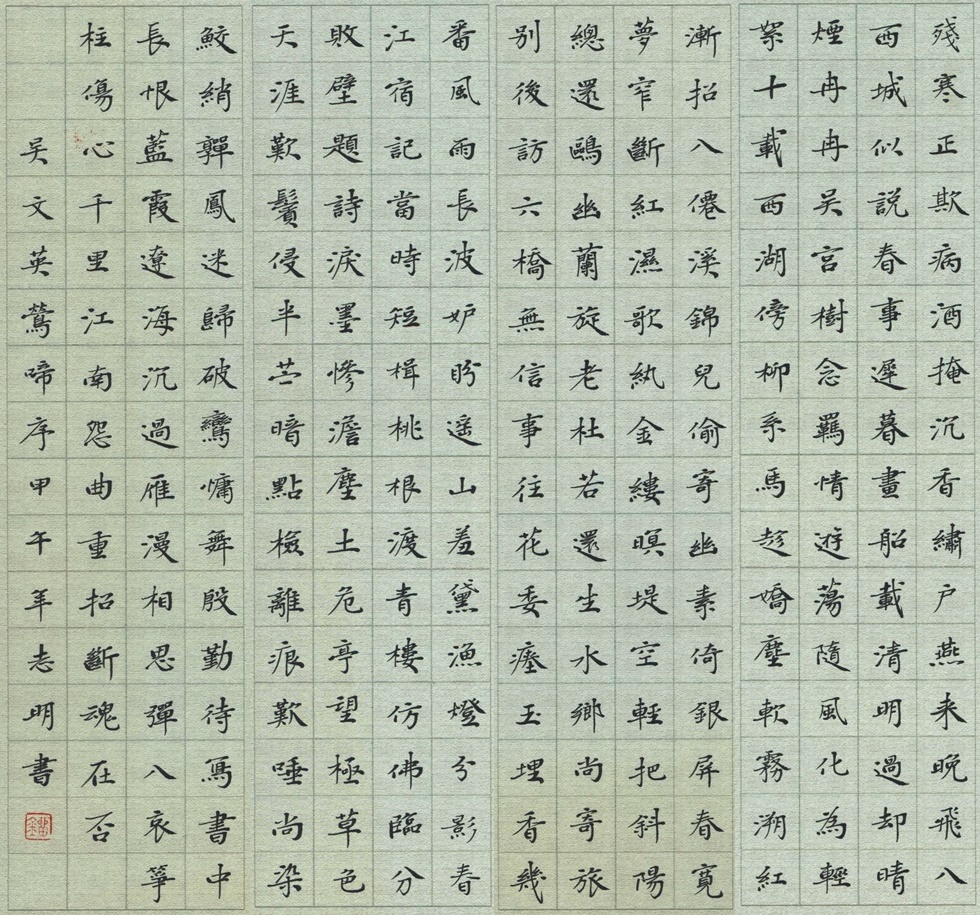 殘寒正欺病酒掩沉香繡戶燕来晚飛八
西城似説春事遲暮畫船載清明過却晴
煙冉冉吴宮樹念羈情遊蕩隨風化為輕
絮十載西湖傍柳系馬趁嬌塵軟霧溯紅
漸招八僊溪錦兒偷寄幽素倚銀屏春寬
夢窄斷紅濕歌紈金縷暝堤空輕把斜陽
總還鷗幽蘭旋老杜若還生水鄉尚寄旅
别後訪六橋無信事往花委瘞玉埋香幾
番風雨長波妒盼遥山羞黛漁燈分影春
江宿記當時短楫桃根渡青樓仿佛臨分
敗壁題詩淚墨慘澹塵土危亭望極草色
天涯歎鬢侵半苎暗點檢離痕歎唾尚染
鮫綃嚲鳳迷歸破鸞慵舞殷勤待寫書中
長恨藍霞遼海沉過雁漫相思彈八哀箏
柱傷心千里江南怨曲重招斷魂在否
吴文英鶯啼序甲午年志明書